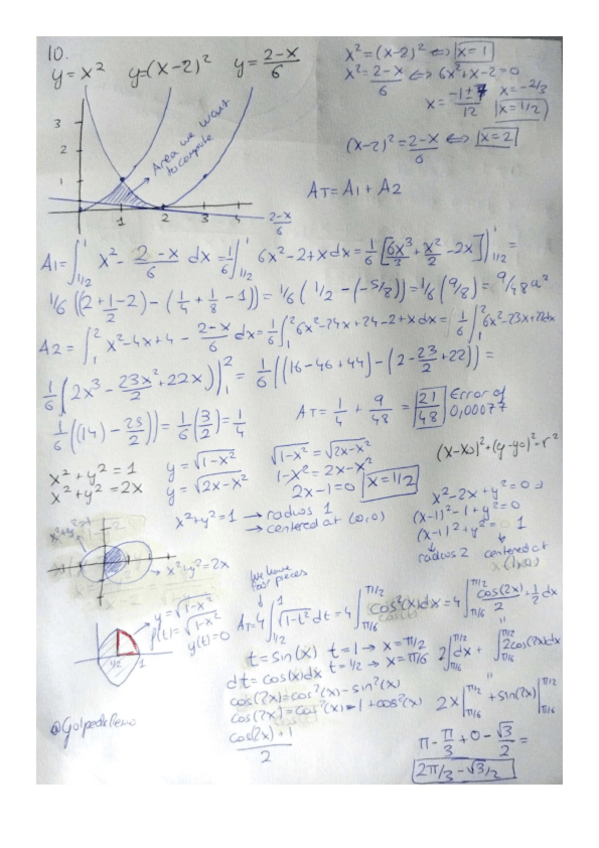 10.
y = x² y = (x-2)² y = (2-x)/6
x² = (x-2)² ⇔ x = 1
x² = (2-x)/6 ⇔ 6x² + x - 2 = 0
x = (-1 ± 7)/12 x = -2/3
x = 1/2
(x-2)² = (2-x)/6 ⇔ x = 2
3
2
1
Area we want to compute
1 2 3 4
(2-x)/6
AT = A1 + A2
A1 = ∫_{1/2}^{1} x² - (2-x)/6 dx = 1/6 ∫_{1/2}^{1} 6x² - 2 + x dx = 1/6 [6x³/3 + x²/2 - 2x]|_{1/2}^{1} =
1/6 ((2 + 1/2 - 2) - (1/4 + 1/8 - 1)) = 1/6 (1/2 - (-5/8)) = 1/6 (9/8) = 9/48 a²
A2 = ∫_{1}^{2} x² - 4x + 4 - (2-x)/6 dx = 1/6 ∫_{1}^{2} 6x² - 24x + 24 - 2 + x dx = 1/6 ∫_{1}^{2} 6x² - 23x + 22 dx
1/6 (2x³ - 23x²/2 + 22x)|_{1}^{2} = 1/6 ((16 - 46 + 44) - (2 - 23/2 + 22)) =
1/6 ((14) - 25/2) = 1/6 (3/2) = 1/4
AT = 1/4 + 9/48 = 21/48 Error of 0,00077
x² + y² = 1 y = √(1-x²)
x² + y² = 2x y = √(2x-x²)
√(1-x²) = √(2x-x²)
1-x² = 2x-x²
2x-1=0 x = 1/2
(x-x₀)² + (y-y₀)² = r²
x² + y² = 1 → radius 1
→ centered at (0,0)
x² - 2x + y² = 0
(x-1)² - 1 + y² = 0
(x-1)² + y² = 1
radius 2 centered at
x²+y²=1
→ x²+y²=2x
→ y = √(1-x²)
f(t) = √(1-x²)
y(t) = 0
1/2 1
We have four pieces
AT = 4 ∫_{1/2}^{1} √(1-t²) dt = 4 ∫_{π/6}^{π/2} cos²(x) dx = 4 ∫_{π/6}^{π/2} cos(2x)/2 + 1/2 dx
t = sin(x) t = 1 → x = π/2
dt = cos(x)dx t = 1/2 → x = π/6
2 ∫_{π/6}^{π/2} dx + ∫_{π/6}^{π/2} 2cos(2x)dx
cos(2x) = cos²(x) - sin²(x)
cos(2x) = cos²(x) - 1 + cos²(x)
(cos(2x) + 1)/2
2x|_{π/6}^{π/2} + sin(2x)|_{π/6}^{π/2}
π - π/3 + 0 - √3/2 =
2π/3 - √3/2